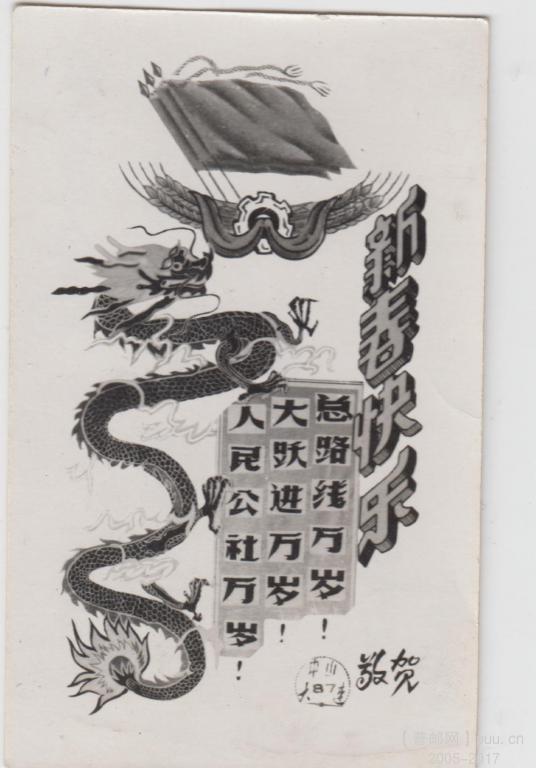 新春快乐
总路线万岁！
大跃进万岁！
人民公社万岁！
敬贺
中山
87
大连
【普邮网】puu.cn
2005-2017